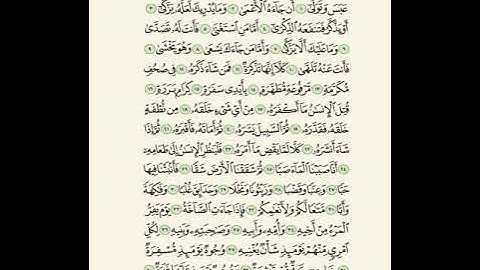 عَبَسَ وَتَوَلَّىٰٓ ١ أَن جَآءَهُ ٱلْأَعْمَىٰ ٢ وَمَا يُدْرِيكَ لَعَلَّهُۥ يَزَّكَّىٰٓ ٣
أَوْ يَذَّكَّرُ فَتَنفَعَهُ ٱلذِّكْرَىٰٓ ٤ أَمَّا مَنِ ٱسْتَغْنَىٰ ٥ فَأَنتَ لَهُۥ تَصَدَّىٰ
٦ وَمَا عَلَيْكَ أَلَّا يَزَّكَّىٰ ٧ وَأَمَّا مَن جَآءَكَ يَسْعَىٰ ٨ وَهُوَ يَخْشَىٰ ٩
فَأَنتَ عَنْهُ تَلَهَّىٰ ١٠ كَلَّآ إِنَّهَا تَذْكِرَةٌ ١١ فَمَن شَآءَ ذَكَرَهُۥ ١٢ فِى صُحُفٍ
مُّكَرَّمَةٍ ١٣ مَّرْفُوعَةٍ مُّطَهَّرَةٍۭ ١٤ بِأَيْدِى سَفَرَةٍ ١٥ كِرَامٍۭ بَرَرَةٍ ١٦
قُتِلَ ٱلْإِنسَٰنُ مَآ أَكْفَرَهُۥ ١٧ مِنْ أَىِّ شَىْءٍ خَلَقَهُۥ ١٨ مِن نُّطْفَةٍ
خَلَقَهُۥ فَقَدَّرَهُۥ ١٩ ثُمَّ ٱلسَّبِيلَ يَسَّرَهُۥ ٢٠ ثُمَّ أَمَاتَهُۥ فَأَقْبَرَهُۥ ٢١ ثُمَّ إِذَا
شَآءَ أَنشَرَهُۥ ٢٢ كَلَّا لَمَّا يَقْضِ مَآ أَمَرَهُۥ ٢٣ فَلْيَنظُرِ ٱلْإِنسَٰنُ إِلَىٰ طَعَامِهِۦٓ
٢٤ أَنَّا صَبَبْنَا ٱلْمَآءَ صَبًّا ٢٥ ثُمَّ شَقَقْنَا ٱلْأَرْضَ شَقًّا ٢٦ فَأَنۢبَتْنَا فِيهَا
حَبًّا ٢٧ وَعِنَبًا وَقَضْبًا ٢٨ وَزَيْتُونًا وَنَخْلًا ٢٩ وَحَدَآئِقَ غُلْبًا ٣٠ وَفَٰكِهَةً
وَأَبًّا ٣١ مَّتَٰعًا لَّكُمْ وَلِأَنْعَٰمِكُمْ ٣٢ فَإِذَا جَآءَتِ ٱلصَّآخَّةُ ٣٣ يَوْمَ يَفِرُّ
ٱلْمَرْءُ مِنْ أَخِيهِ ٣٤ وَأُمِّهِۦ وَأَبِيهِ ٣٥ وَصَٰحِبَتِهِۦ وَبَنِيهِ ٣٦ لِكُلِّ
ٱمْرِئٍ مِّنْهُمْ يَوْمَئِذٍ شَأْنٌ يُغْنِيهِ ٣٧ وُجُوهٌ يَوْمَئِذٍ مُّسْفِرَةٌ